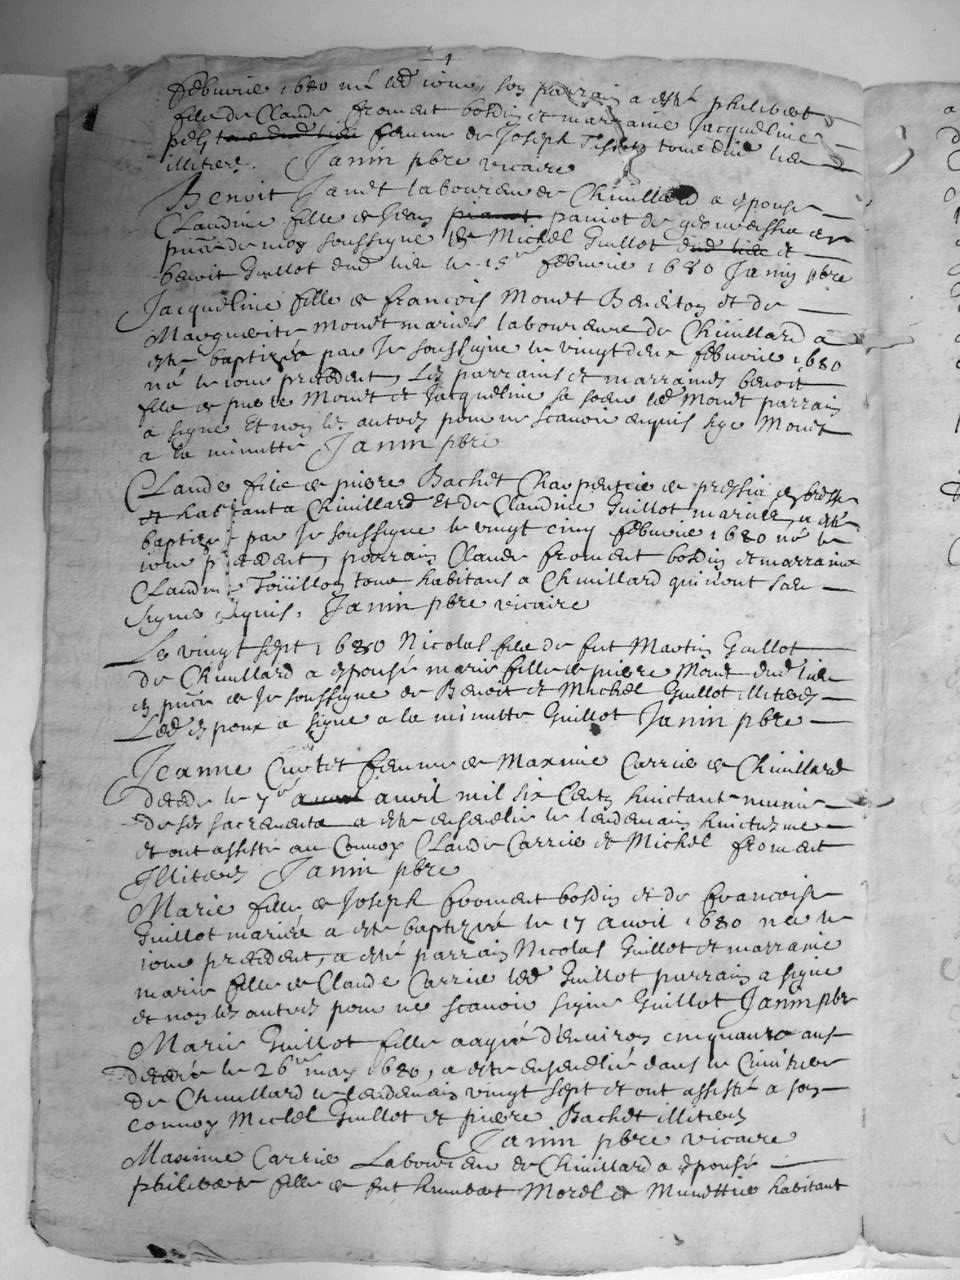 febvrie 1680 né led iour, son parrain a esté philibert
fils de Claude froment bosdin et marraine Jacqueline
femme de Joseph Tissot tous dud lieu
illiterés. Janin pbre vicaire
Benoit Janet laboureur de Chivillard a epousé
Claudine fille de Jean paniot de
de moy soussigne de Michel Guillot et
benoit Guillot dud lieu le 15e febvrie 1680 Janin pbre
Jacqueline fille de francois Monet Beneiton et de
Marguerite Monet mariés laboureurs de Chivillard a
esté baptizée par Je soussigne le vingt deux febvrie 1680
né le iour precedent, Les parrains et marraines benoit
fils de pierre Monet et Jacqueline sa soeur led Monet parrain
a signe Et non les autres pour ne scavoir enquis sige Monet
a la minutte Janin pbre
Claude fils de pierre Bachet Charpentier de pressia en bresse
et habitant a Chivillard Et de Claudine Guillot mariés, a esté
baptizé par Je soussigne le vingt cinq febvrie 1680 né le
iour precedent, parrain Claude froment bosdin et marraine
Claudine Toüillon tous habitans a Chivillard qui n'ont sceu
signer enquis. Janin pbre vicaire
Le vingt sept 1680 Nicolas fils de fut Martin Guillot
de Chivillard a epousé marie fille de pierre Monet dud lieu
en pnce de Je soussigne de Benoit et Michel Guillot illiterés
Led epoux a signe a la minutte Guillot Janin pbre
Jeanne femme de Maxime Carrier de Chivillard
decede le 7e avril mil six Cents huictante munie
de ses sacrements a esté ensevelie le lendemain huictiesme
et ont assisté au Convoy Claude Carrier et Michel froment
Illiterés Janin pbre
Marie fille de Joseph froment bosdin et de francoise
Guillot mariés a esté baptizée le 17 avril 1680 née le
iour precedent, a esté parrain Nicolas Guillot et marraine
marie fille de Claude Carrier led Guillot parrain a signe
et non les autres pour ne scavoir signe Guillot Janin pbr
Marie Guillot fille aagée d'environ cinquante ans
decedée le 26e may 1680, a esté ensevelie dans le Cimitiere
de Chivillard le lendemain vingt sept et ont assisté a son
convoy Michel Guillot et pierre Bachet illiterés
Janin pbre vicaire
Maxime Carrier Laboureur de Chivillard a epousé
philiberte fille de fut humbert Morel de habitant